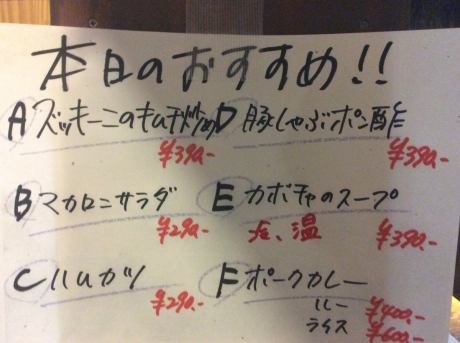 本日のおすすめ!!
A ズッキーニのキムチ炒め
¥390-
B マカロニサラダ
¥290.-
C ハムカツ
¥290.-
D 豚しゃぶポン酢
¥390-
E カボチャのスープ
冷、温 ¥390-
F ポークカレー
ルー ¥400.-
ライス ¥600.-